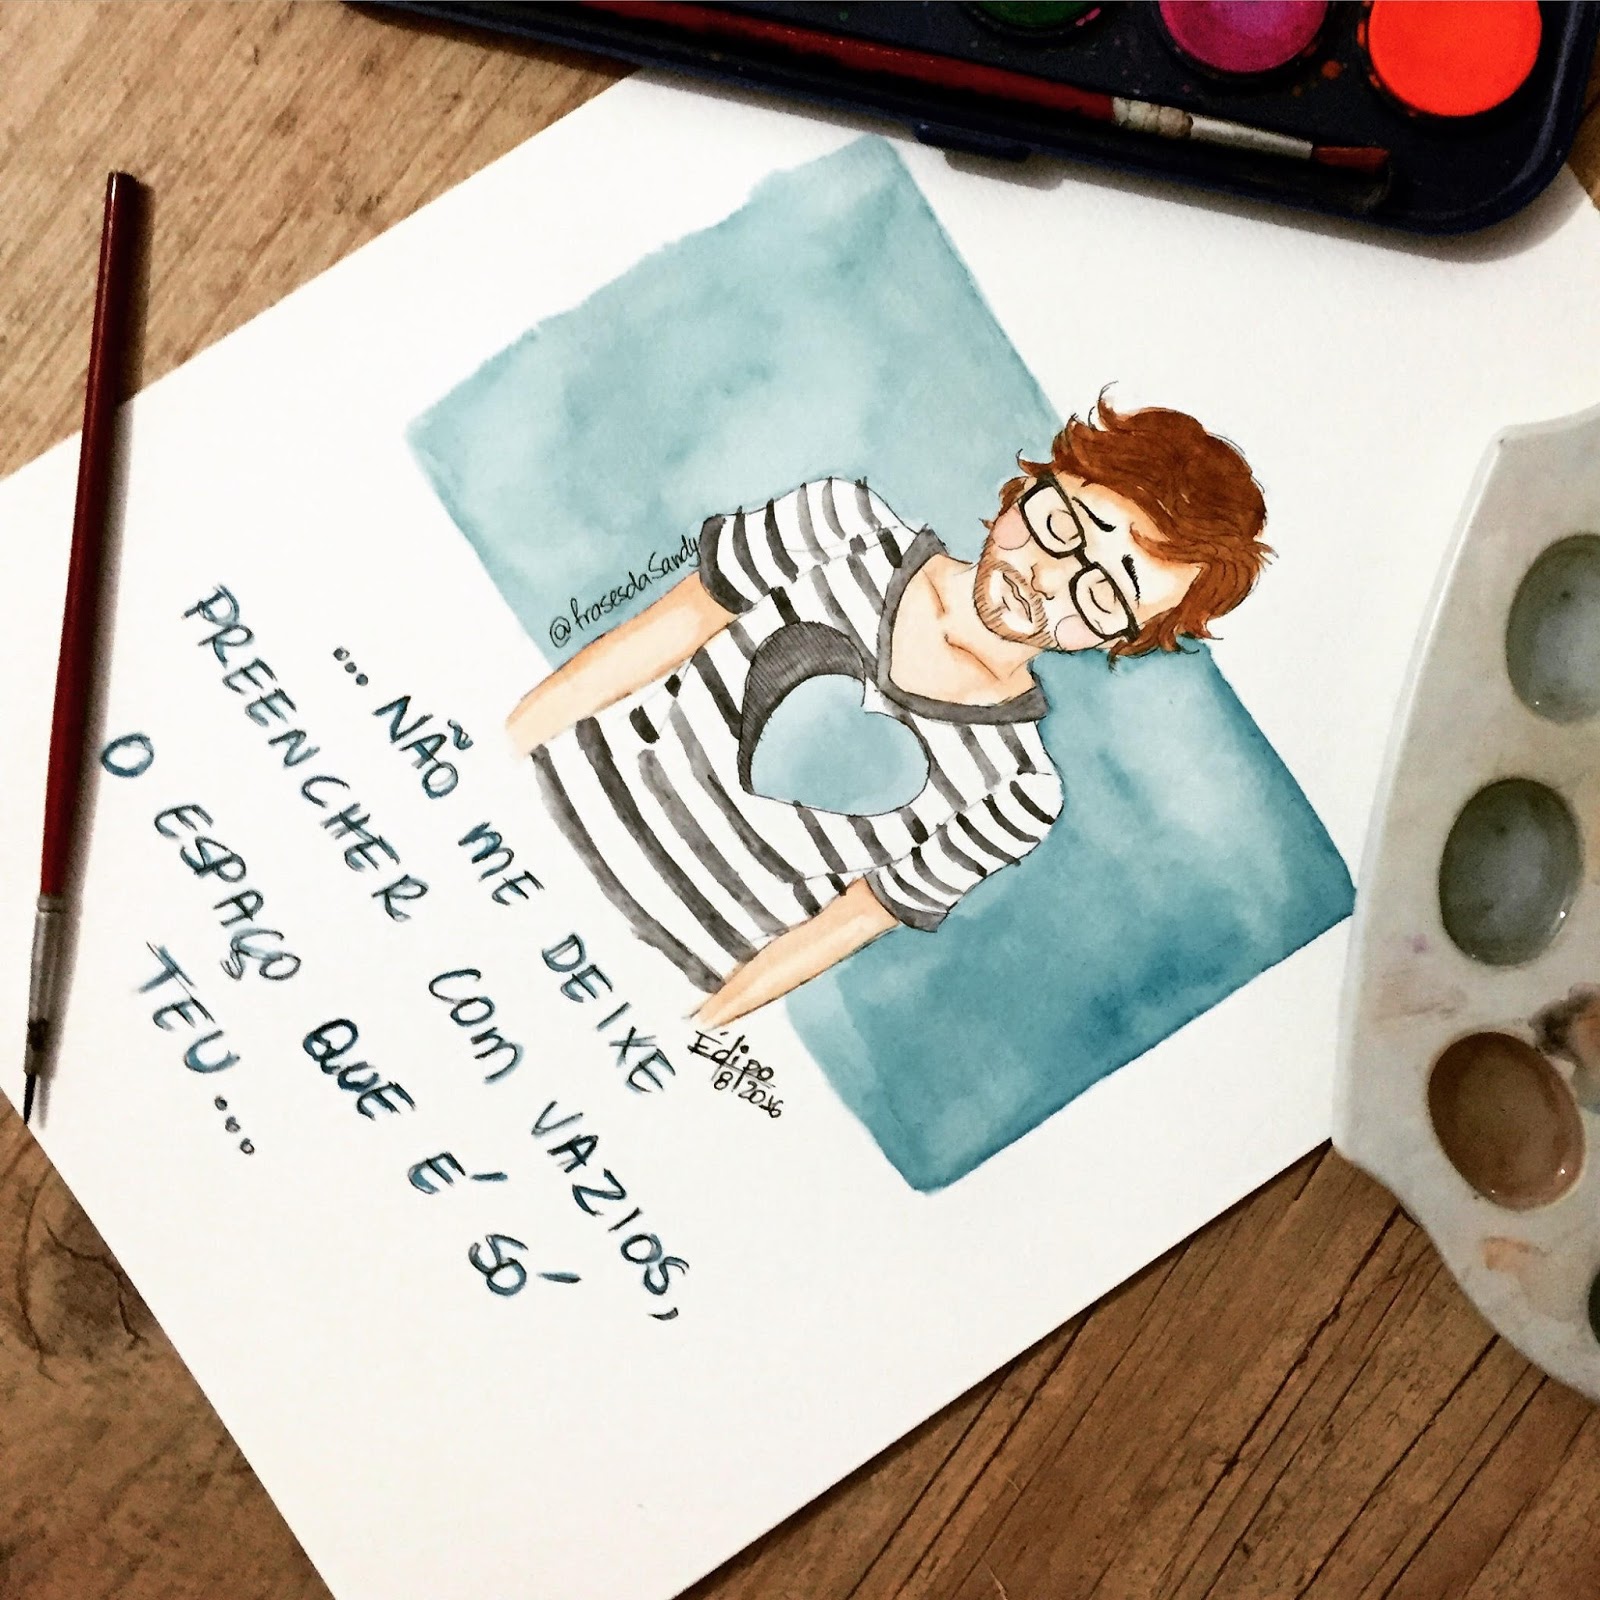 @frasesdaSandy
Édipo
8/2016
... NÃO ME DEIXE
PREENCHER COM VAZIOS,
O ESPAÇO QUE É SÓ
TEU...